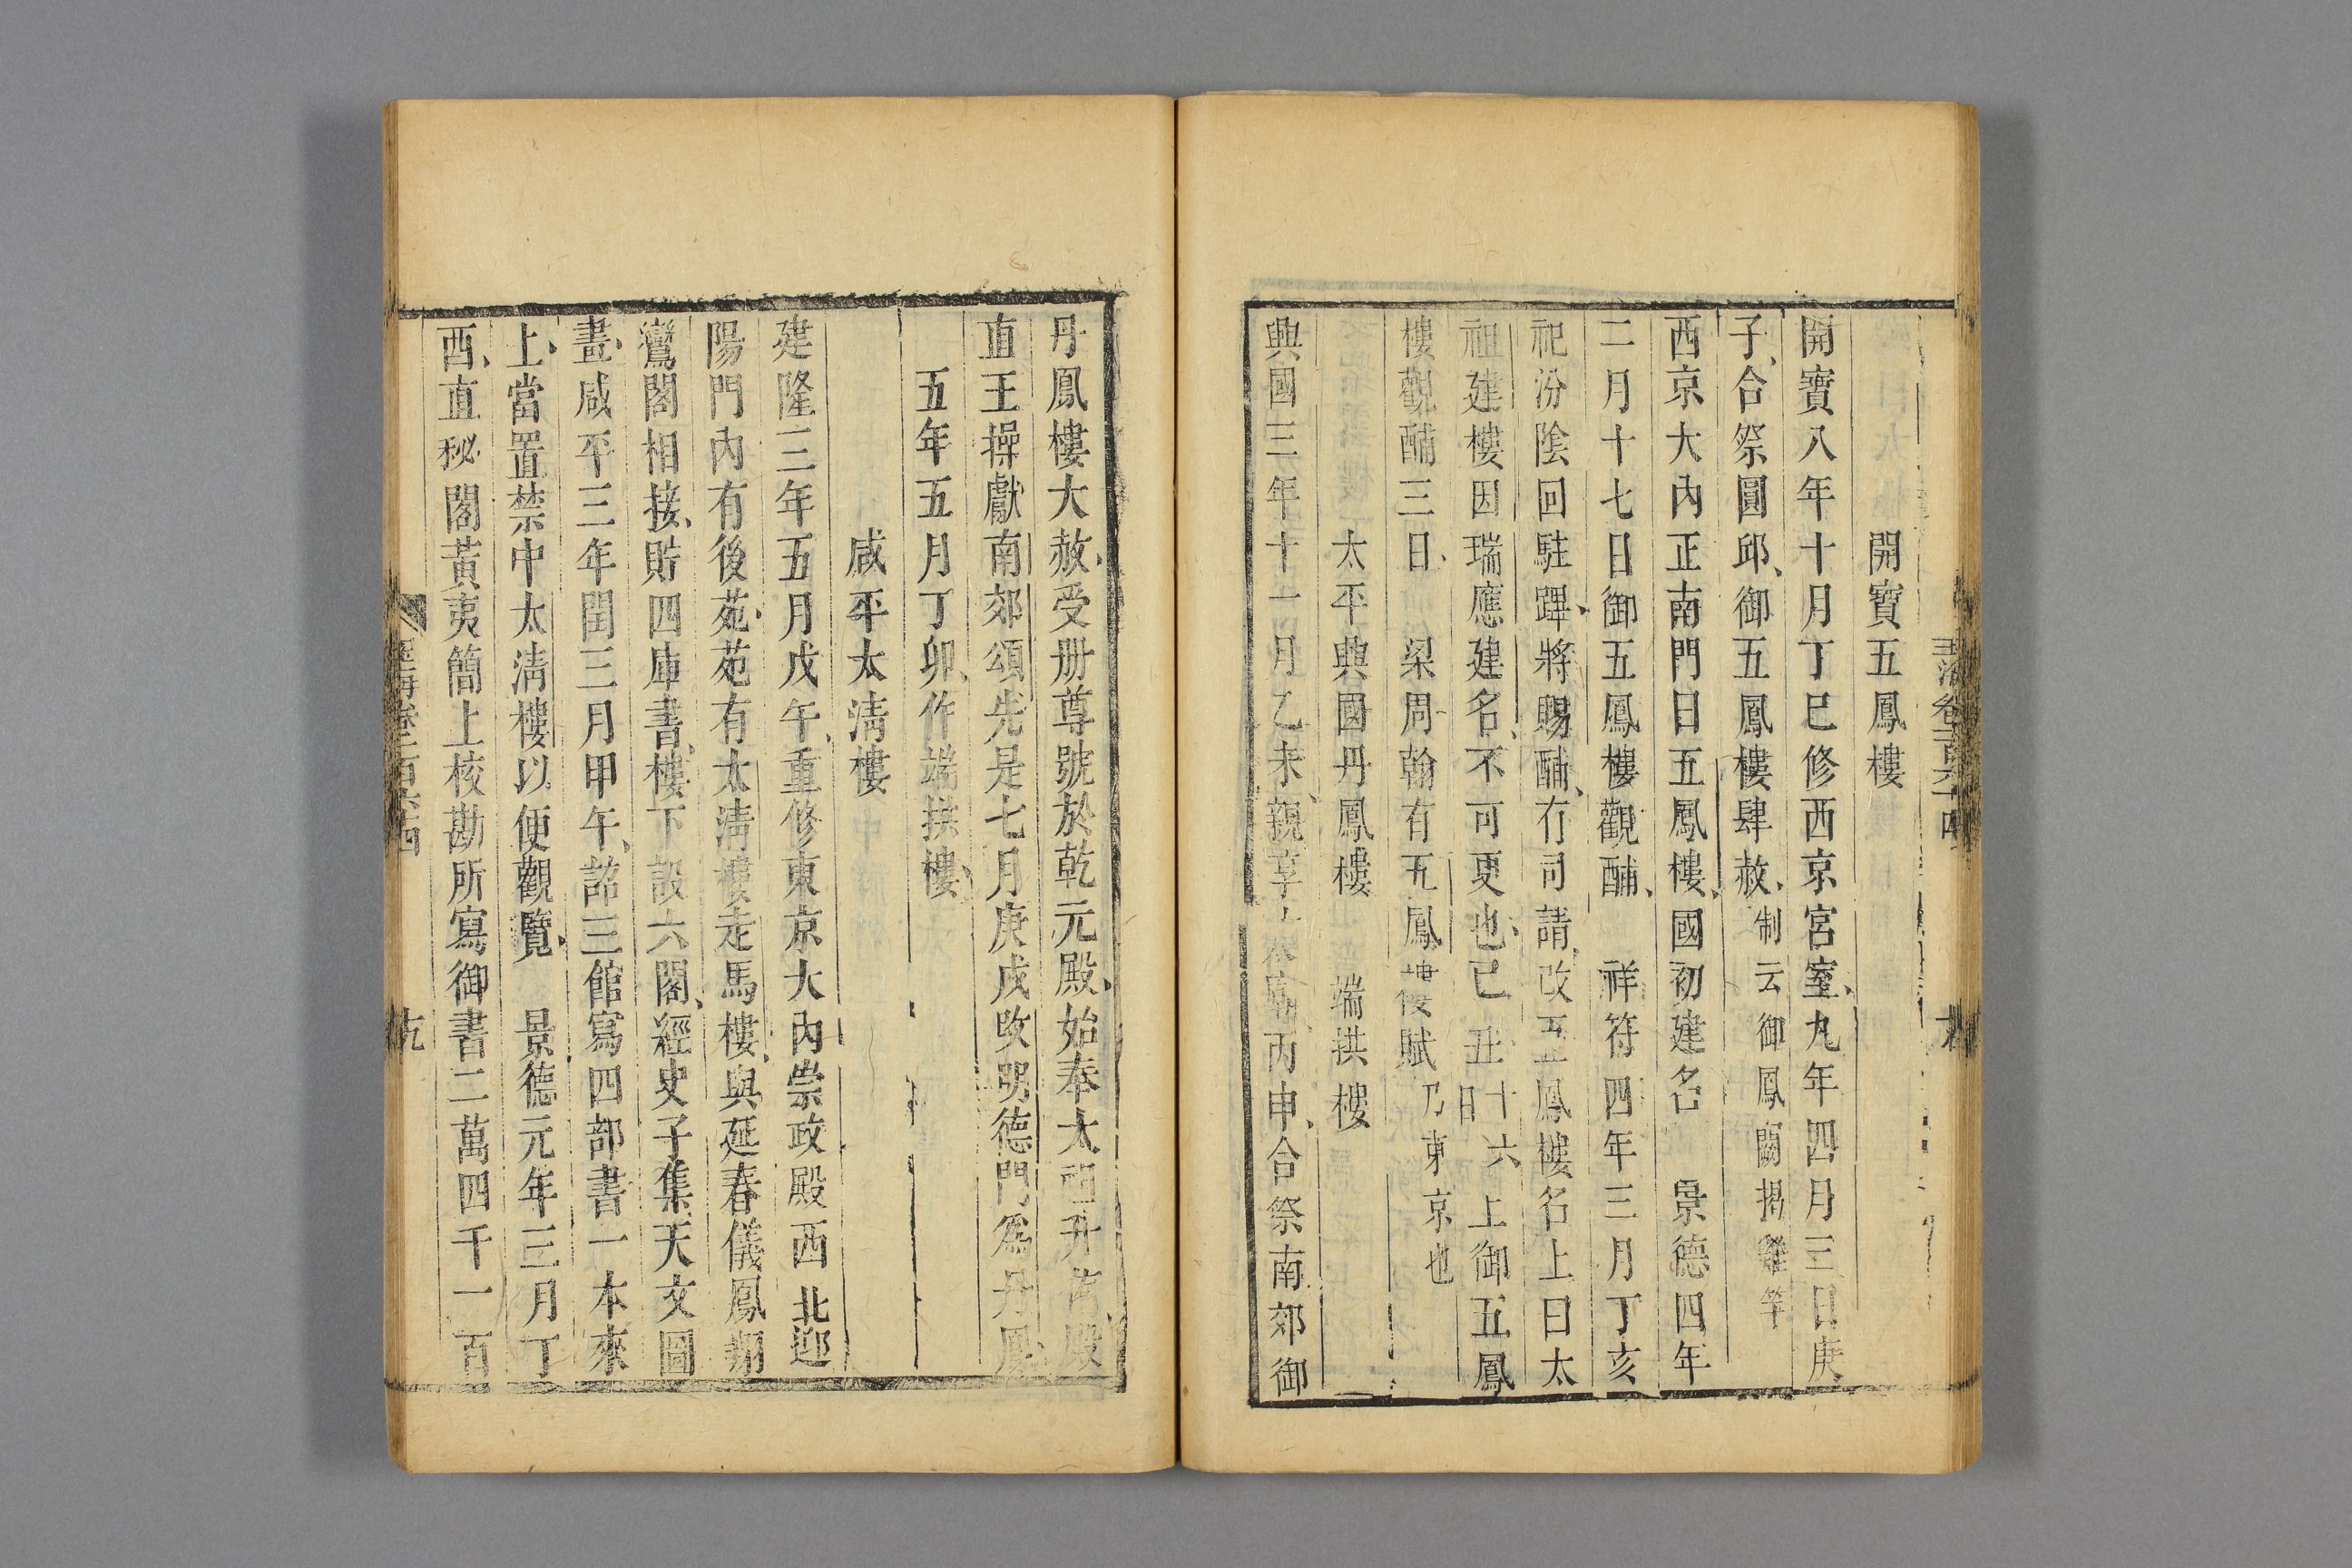 開寶五鳳樓
開寶八年十月丁巳修西京宮室、九年四月三日庚
子、合祭圓邱、御五鳳樓肆赦、制云御鳳闕揭雞竿
西京大內正南門曰五鳳樓、國初建名　景德四年
二月十七日御五鳳樓觀酺、　祥符四年三月丁亥
祀汾陰回駐蹕、將賜酺、有司請、改五鳳樓名上曰太
祖建樓因瑞應建名、不可更也、己丑十六日上御五鳳
樓觀酺三日、　梁周翰有五鳳樓賦乃東京也
太平興國丹鳳樓　端拱樓
興國三年十一月乙未、親享太廟、丙申、合祭南郊御
丹鳳樓大赦、受册尊號於乾元殿、始奉太祖升侑、殿
直王操獻南郊頌先是七月庚戌改明德門爲丹鳳
五年五月丁卯、作端拱樓、
咸平太清樓
建隆三年五月戊午、重修東京大內崇政殿西北迎
陽門內有後苑、苑有太清樓走馬樓、與延春儀鳳翔
鸞閣相接、貯四庫書、樓下設六閣、經史子集天文圖
畫、咸平三年閏三月甲午、詔三館寫四部書一本來
上、當置禁中太清樓以便觀覽、　景德元年三月丁
酉、直秘閣黃夷簡上校勘所寫御書二萬四千一百
玉海卷一百六十四